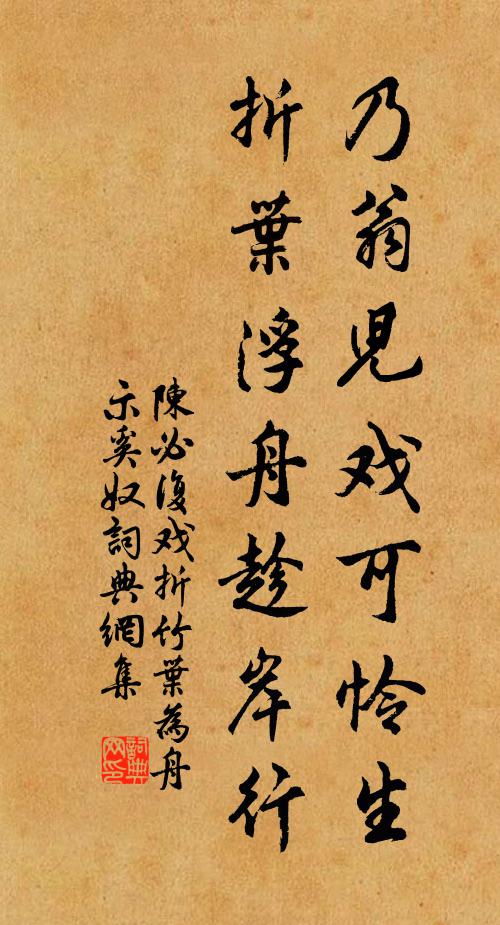 乃翁児戏可怜生
折葉浮舟趁岸行
陳必復戏折竹葉為舟
示奚奴詞典網集
詞典網印